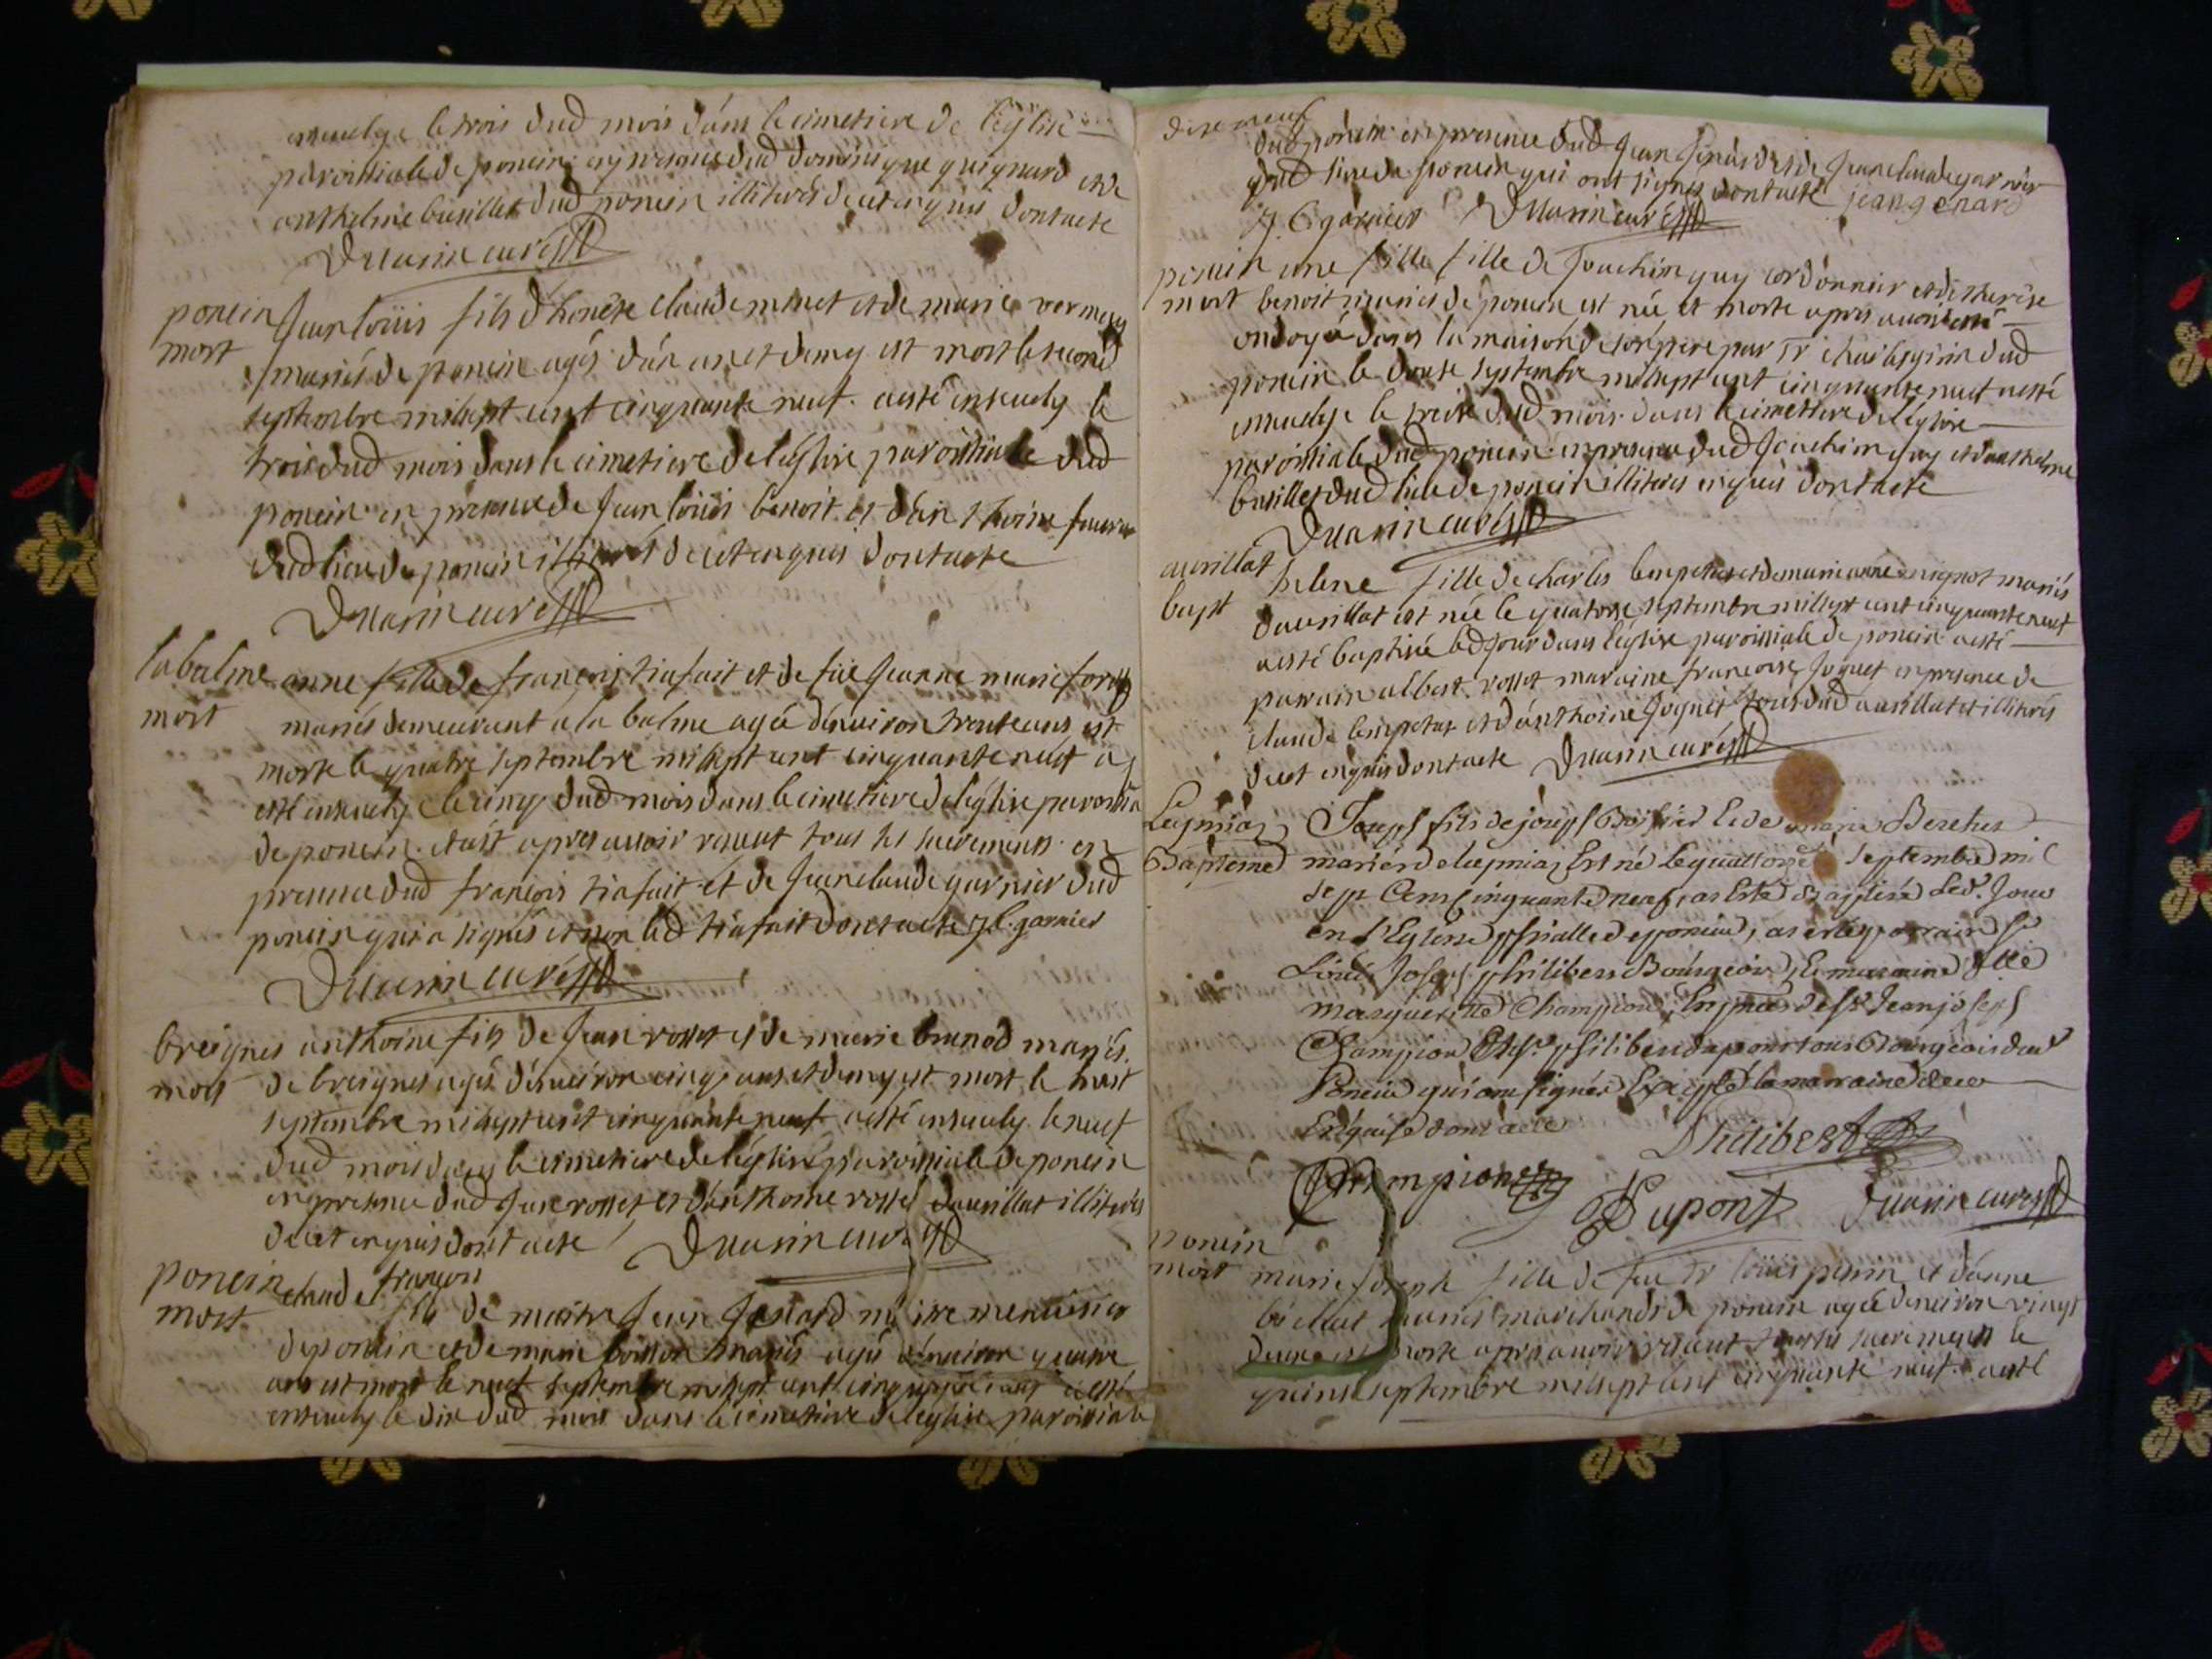 ensevelye le trois dud mois dans le cimetiere de leglise
paroissiale de poncin en presence dud dominique guignard et de
anthelme busillet dud poncin illiterés de ce enquis dont acte
Duarin curé
poncin
mort
Jean loüis fils d'honéte claude minet et de marie vermey
mariés de poncin agés d'un an et demy est mort le second
septembre mil sept cent cinquante neuf. a esté ensevely le
trois dud mois dans le cimetiere de l'eglise paroissiale dud
poncin en presence de Jean loüis benoit et d'an thoine
dud lieu de poncin illiterés de ce enquis dont acte
Duarin curé
la balme
mort
anne fille de françois tiafait et de füe Jeanne marie
mariés demeurant a la balme agée d'énuiron trente ans est
morte le quatre septembre mil sept cent cinquante neuf a
esté ensevely le cinq dud mois dans le cimetiere de l'eglise paroissia
de poncin apres avoir receut tous les sacrements en
presence dud françois tiafait et de Jean claude garnier dud
poncin qui a signés et non led tiafait dont acte J C garnier
Duarin curé
breignes
mort
anthoine fils de Jean rosset et de marie brunod mariés
de breignes agés d'énuiron cinq ans et demy est mort le huit
septembre mil sept cent cinquante neuf a esté ensevely le neuf
dud mois dans le cimetiere de l'eglise paroissiale de poncin
en presence dud Jean rosset et d'anthoine rosset d'avrillat illiterés
de ce enquis dont acte Duarin curé
poncin
mort
claude françois
fils de maitre Jean maitre menuisier
de poncin et de marie mariés agés d'énuiron quatre
ans est mort le neuf septembre mil sept cent cinquante neuf a esté
ensevely le dix dud mois dans le cimetiere de l'eglise paroissiale
dixe neuf
dud poncin en presence dud Jean et de Jean claude garnier
dud lieu de poncin qui ont signés dont acte jean genard
J C garnier Duarin curé
poncin
mort
une fille fille de Joachim guy cordonnier et de therese
benoit mariés de poncin est née et morte apres avoir esté
ondoyée dans la maison de son pere par Sr charles dud
poncin le douse septembre mil sept cent cinquante neuf a esté
ensevelye le treise dud mois dans le cimetiere de l'eglise
paroissiale dud poncin en presence dud Joachim guy et d'anthelme
busillet dud lieu de poncin illiterés enquis dont acte
Duarin curé
avrillat
bapt
helene fille de charles et de marie anne mignot mariés
d'avrillat est née le quatorse septembre mil sept cent cinquante neuf
a esté baptisée led jour dans l'eglise paroissiale de poncin a esté
parrain albert rosset maraine françoise Joguet en presence de
claude et d'anthoine Joguet tous dud avrillat et illiterés
de ce enquis dont acte Duarin curé
Leymiaz
Bapteme
Joseph fils de joseph et de marie
mariers de leymiaz Est né le quattorze septembre mil
sept Cens Cinquante neuf, as Esté Baptisé Led. Jour
en L'Eglise de poncin, as esté parrain Sr
Joseph philibert Bourgeois, Et maraine
marguerite Champion, En de Sr Jean joseph
Champion Et Sr philibert dupont tous Bourgeois dud
Poncin qui ont signés Excepté la marraine de ce
Enquise dont acte
Philibert
Champion
Dupont Duarin curé
poncin
mort
marie fille de feu Sr loüis et d'anne
mariés marchands de poncin agée d'énuiron vingt
deux est morte apres avoir receut tous les sacrements le
quinse septembre mil sept cent cinquante neuf. a esté